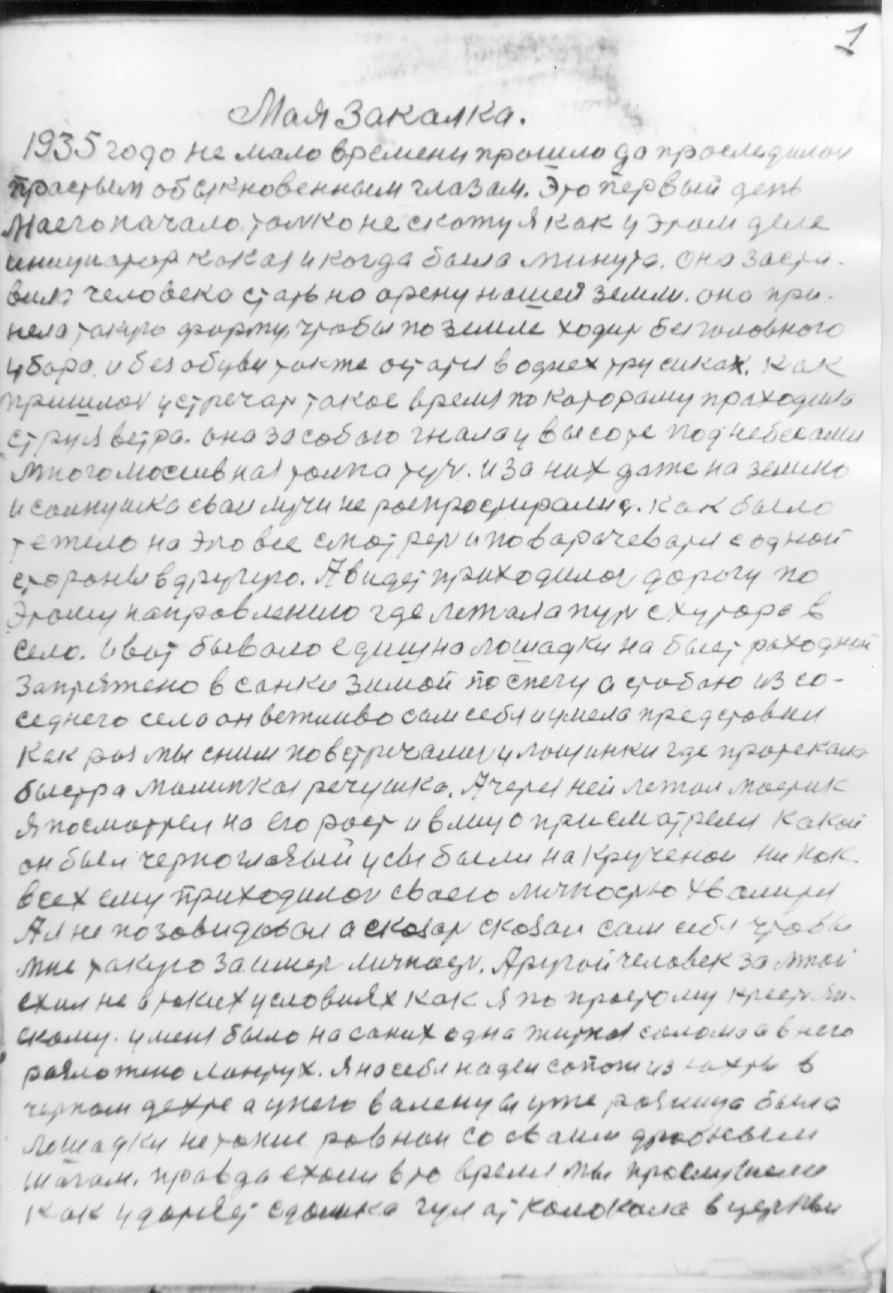 1
Мая Закалка.
1935 годо не мало времени прошло до проследилои
прастым обыкновенным глазам. Это первый день
Маего начало, толко не скожу я как у этом деле
инициатор какая и когда была минута. Она заста-
вила человека стать на орену нашей земли. она при-
нела такую форму, чтобы по земле ходит без головного
убора, и без обуви также остатя в однех трусиках. Как
пришлос устречат такое время по каторому праходила
струя ветра. она за собою гнала у высоте поднебесами
многомосивная толпа туч. из за них даже на землю
и солнушка сваи лучи не роспрострирались. как было
тежело на это все смотрет и поварачеватя с одной
стороны в другую. А видет приходилос дорогу по
этому направлению где лежала пут с хутора в
село. и вот бывало едиш на лошадки на быстроходной
Запряжено в санки зимой по снегу а стобаю из со-
седнего села он вежливо сам себя иумела представил
как раз мы сним повстречалис у лощинки где протекала
быстра малинкая речушка. А через ней лежал мостик
Я посматрел на его рост и в лицо присматрелся какой
он был черноглазый усы были накрученои ни как
всех ему приходилос своего личностю хвалится
А я не позовидовал а сказат сказал сам себя чтобы
мне такую заимет личност. Другой человек за мной
ехил не в таких условиях как я по простому крестян-
скому. у меня было на саних одна житная солома а в него
разложено лантух. Я на себя надел сопоги из яхты в
черном дехте а унего валенцы уже разница была
лошадки не такие ровнои со сваим дробневым
шагом. правда ехоли в то время мы прослушели
как ударяет сдалика гул ат колокала в церквы